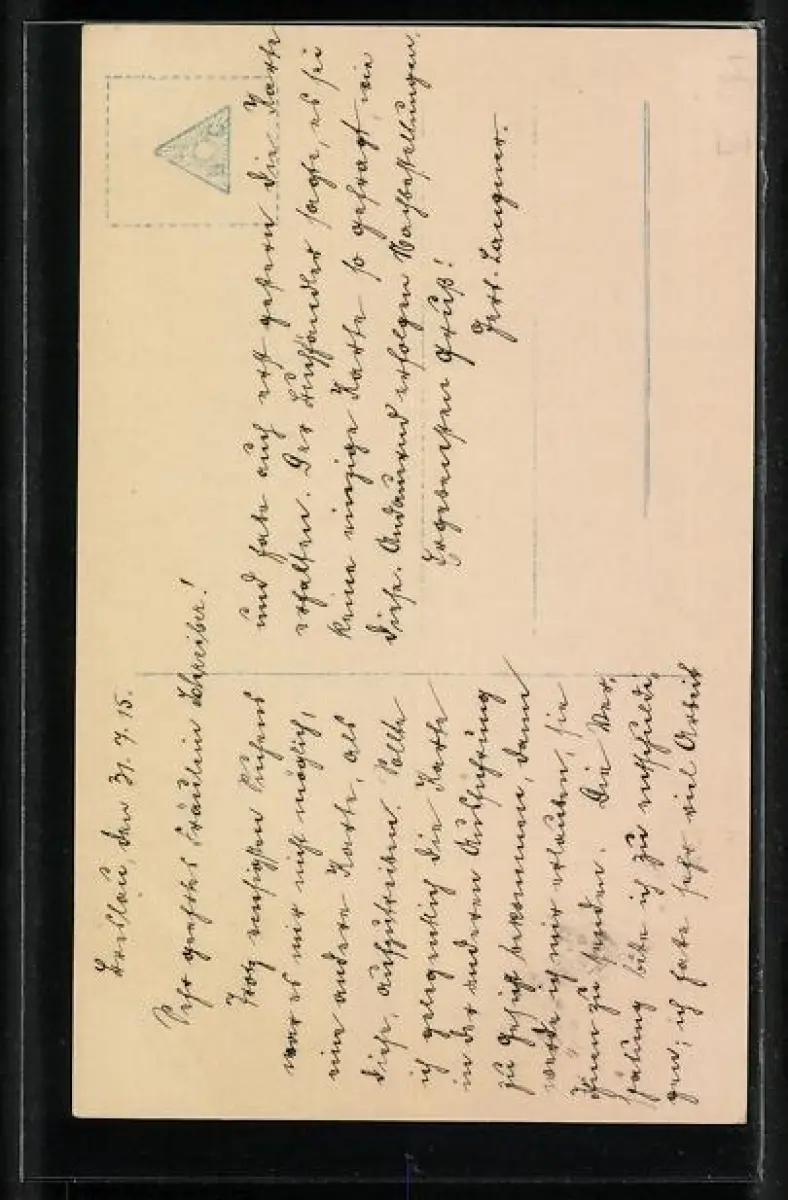 Breslau, den 31.7.15.
Sehr geehrtes Fräulein Schreiber!
Trotz eifrigsten Suchens
war es mir nicht möglich,
eine andere Karte, als
diese, aufzutreiben. Sollte
ich gelegentlich die Karte
in der anderen Ausführung
zu Gesicht bekommen, dann
werde ich mir erlauben, sie
Ihnen zu senden. Die Ver-
spätung bitte ich zu entschuldi-
gen; ich habe sehr viel Arbeit
und habe auch erst gestern die Karte
erhalten. Der Buchhändler sagte, es sei
keine einzige Karte so gefragt, wie
diese. Andauernd erfolgen Nachbestellungen.
Ergebensten Gruß!
Langner.